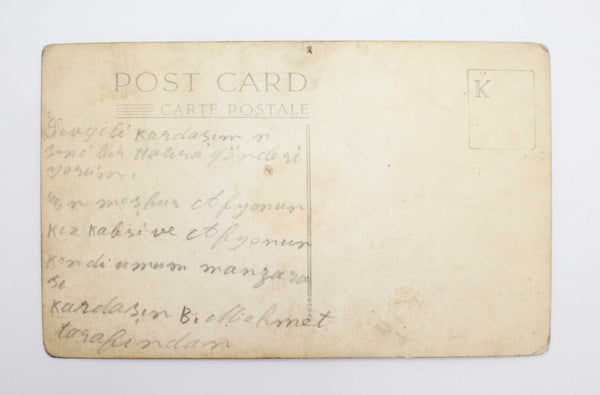 POST CARD
CARTE POSTALE
K
Sevgili kardaşım n
seni bir Hatıra gönderi
yorum.
meşhur Afyonun
Kız kalesi ve Afyonun
Kendi umum manzara
sı
Kardaşın B. Mehmet
tarafından